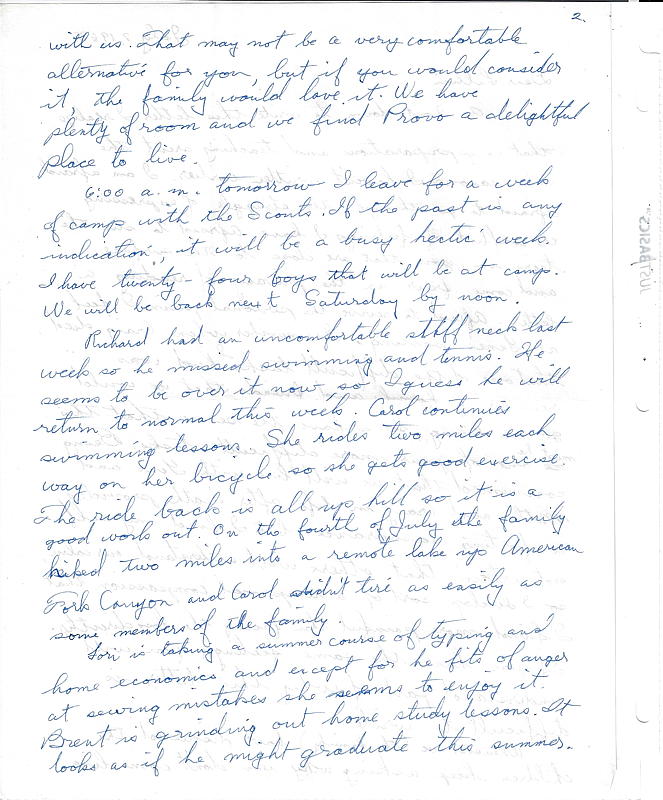 2.
with us. That may not be a very comfortable
alternative for you, but if you would consider
it, the family would love it. We have
plenty of room and we find Provo a delightful
place to live.
6:00 a.m. tomorrow I leave for a week
of camp with the Scouts. If the past is any
indication, it will be a busy hectic week.
I have twenty-four boys that will be at camp.
We will be back next Saturday by noon.
Richard had an uncomfortable stiff neck last
week so he missed swimming and tennis. He
seems to be over it now, so I guess he will
return to normal this week. Carol continues
swimming lessons. She rides two miles each
way on her bicycle so she gets good exercise.
The ride back is all up hill so it is a
good work out. On the fourth of July the family
hiked two miles into a remote lake up American
Fork Canyon and Carol didn't tire as easily as
some members of the family.
Lori is taking a summer course of typing and
home economics and except for he fits of anger
at sewing mistakes she seems to enjoy it.
Brent is grinding out home study lessons. It
looks as if he might graduate this summer.
JUSTBASICS